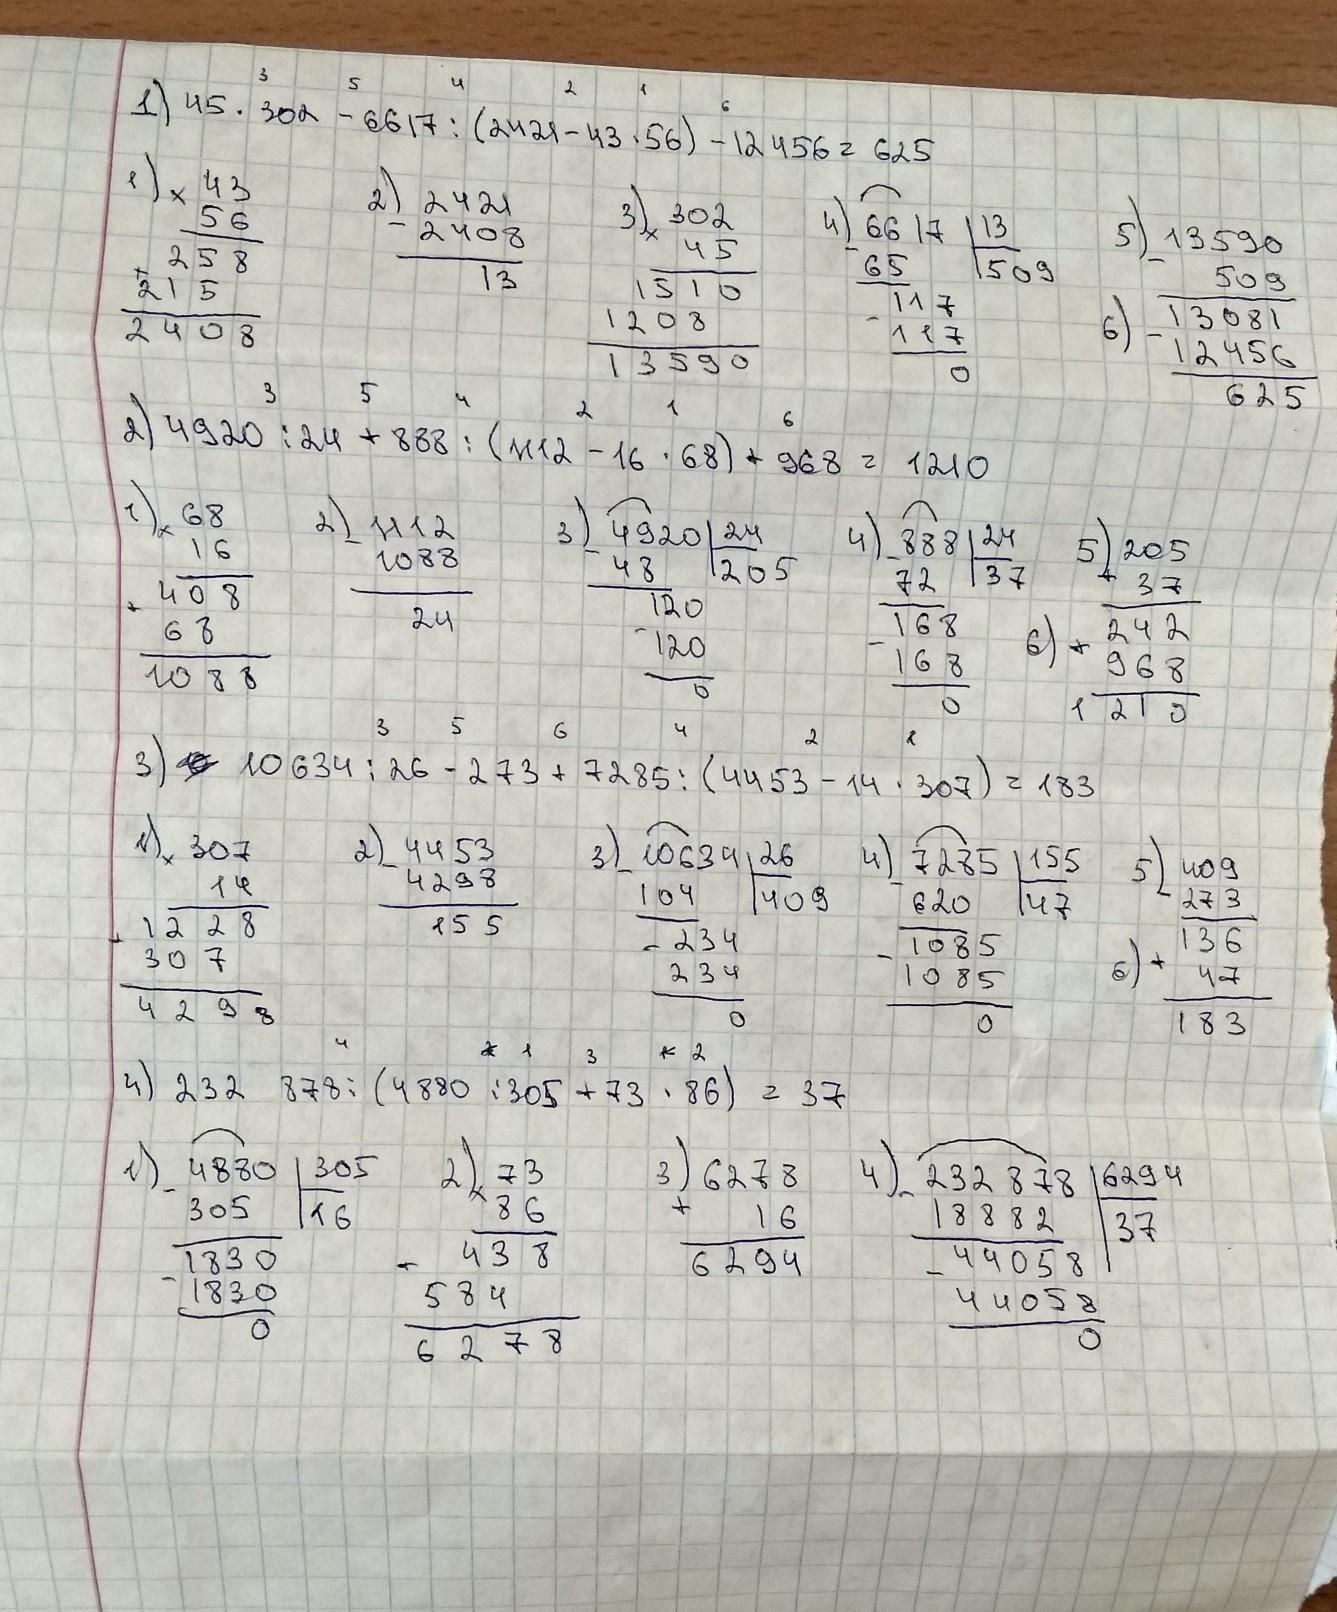 3 5 4 2 1 6
1) 45 · 302 - 6617 : (2421 - 43 · 56) - 12456 = 625
1) × 43 2) - 2421 3) × 302 4) - 6617 | 13 5) - 13590
56 2408 45 65 | 509 509
+ 258 13 1510 - 117 13081
215 1208 117 6) - 12456
2408 13590 0 625
3 5 4 2 1 6
2) 4920 : 24 + 888 : (1112 - 16 · 68) + 968 = 1210
1) × 68 2) - 1112 3) - 4920 | 24 4) - 888 | 24 5) + 205
16 1088 48 | 205 72 | 37 37
+ 408 24 - 120 - 168 242
68 120 168 6) + 968
1088 0 0 1210
3 5 6 4 2 1
3) 10634 : 26 - 273 + 7285 : (4453 - 14 · 307) = 183
1) × 307 2) - 4453 3) - 10634 | 26 4) - 7285 | 155 5) - 409
14 4298 104 | 409 620 | 47 273
+ 1228 155 - 234 - 1085 136
307 234 1085 6) + 47
4298 0 0 183
4 1 3 2
4) 232 878 : (4880 : 305 + 73 · 86) = 37
1) - 4880 | 305 2) × 73 3) + 6278 4) - 232 878 | 6294
305 | 16 86 16 18882 | 37
- 1830 + 438 6294 - 44058
1830 584 44058
0 6278 0